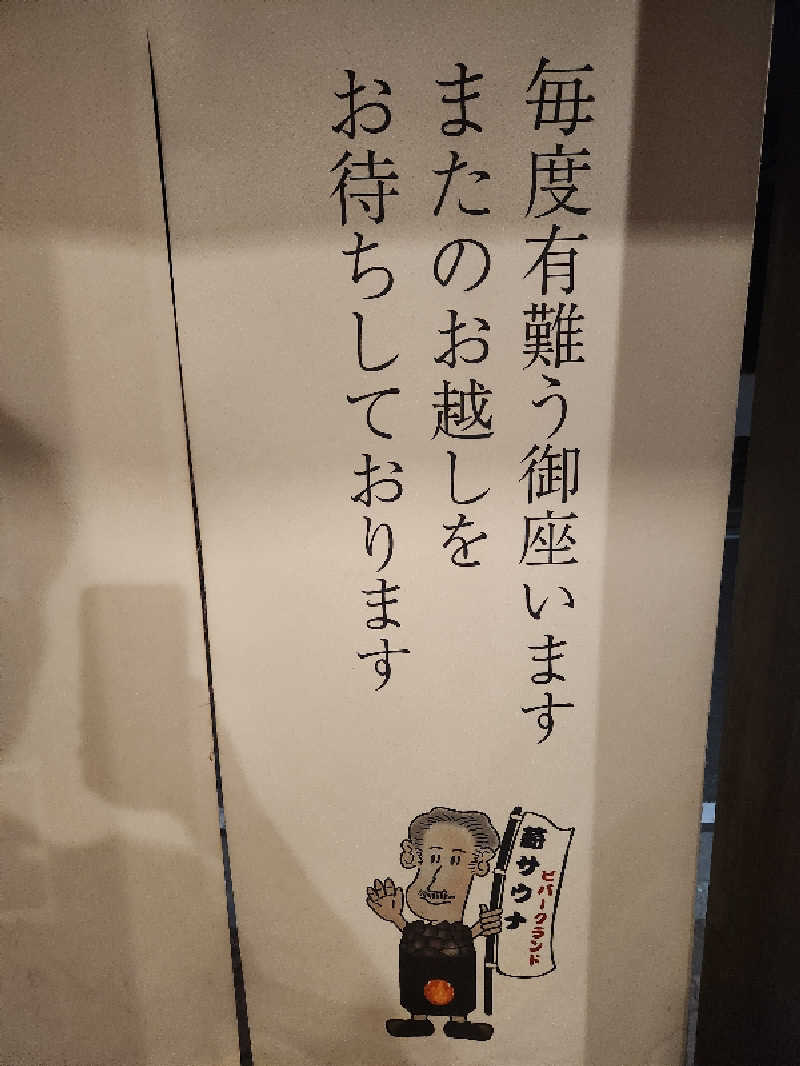 毎度有難う御座います
またのお越しを
お待ちしております
蒔サウナ
ビバークランド